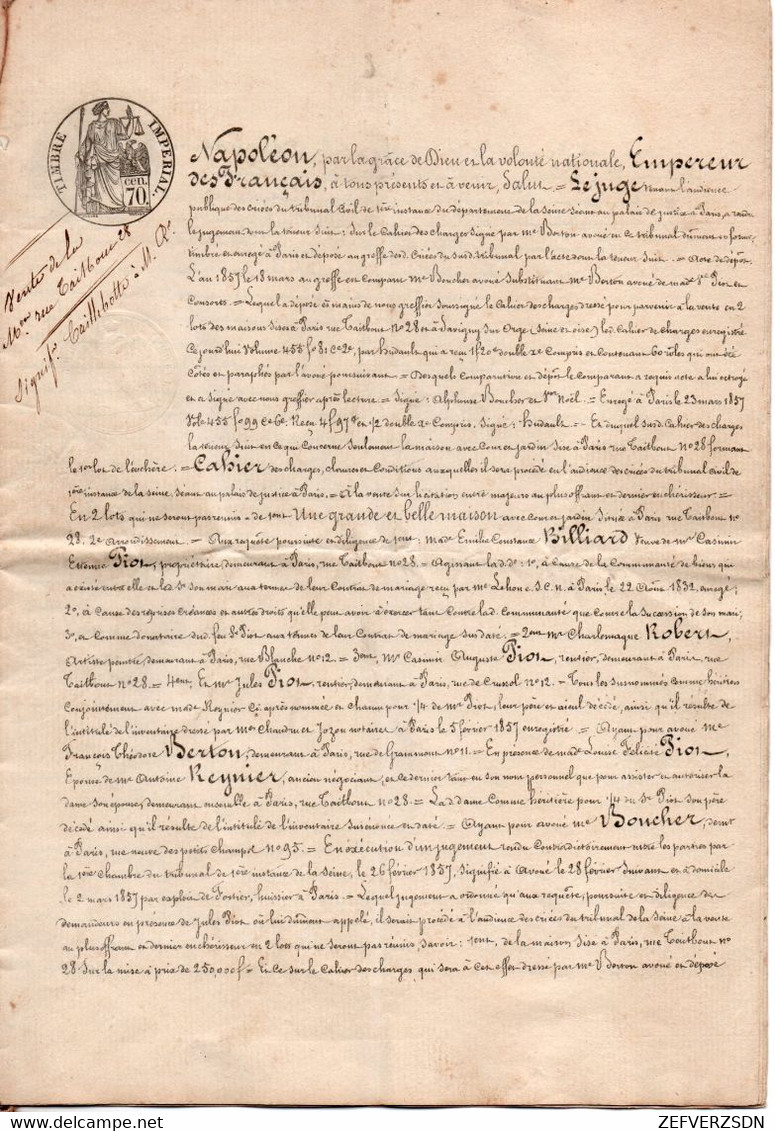 TIMBRE IMPERIAL.
cen. 70.
Vente de la
Mon rue Taitbout 28
Signifn. Caillibotte à M. Re
Napoléon, par la grâce de Dieu et la volonté nationale, Empereur
des Français, à tous présents et à venir, Salut = Le juge tenant l'audience
publique des criées du tribunal Civil de 1ère instance du département de la Seine séant au palais de justice à Paris a rendu
le jugement dont la teneur suit : Sur le Cahier des charges Signé par Me Berton avoué en ce tribunal dûment en forme
timbré et enregé à Paris et déposé au greffe des Criées du Susd tribunal par l'acte dont la teneur Suit. = Acte de dépôt.
L'an 1857 le 18 mars au greffe est Comparu Me Boucher avoué Substituant Me Berton avoué de made Ve Piot et
Consorts. = Lequel a déposé ès mains de nous greffier Soussigné le Cahier des charges, dressé pour parvenir à la vente en 2
lots des maisons Sises à Paris rue Taitbout no 28 et à Savigny Sur Orge (Seine et oise) led. Cahier de charges enregistré
Cejourd'hui Volume 455 fo 81 Ce 2e, par hudault qui a reçu 1f 20c double 2e Compris et Contenant 60 rôles qui ont été
Cotés et paraphés par l'avoué poursuivant = Desquels Comparution et dépôt le Comparant a requis acte à lui octroyé
et a Signé avec nous greffier après lecture = Signé : Alphonse Boucher et Noël. = Enregé à Paris le 23 mars 1857
Vole 455 fo 99 Ce 6e. Reçu 4f 97c et 1/2 double 2e Compris. Signé : hudault = Et duquel Susd. Cahier des charges
la teneur Suit en Ce qui Concerne Seulement la maison avec Cour et jardin Sise à Paris rue Taitbout No 28 formant
le 1er lot de l'enchère. = Cahier des charges, clauses et Conditions auxquelles il sera procédé en l'audience des criées du tribunal Civil de
1ère instance de la Seine, Séant au palais de justice à Paris. = À la vente Sur licitation entre majeurs au plus offrant et dernier enchérisseur. =
En 2 lots qui ne seront pas réunis = de 1ent Une grande et belle maison avec Cour et jardin Située à Paris rue Taitbout no
28. 2e Arrondissement. = Aux requête poursuite et diligence de 1ent : made Emilie Constance Billiard Veuve de Mr Casimir
Etienne Piot, propriétaire, demeurant à Paris, rue Taitbout no 28. = Agissant lad. de : 1o, à Cause de la Communauté de biens qui
a existé entre elle et led Sr Son mari aux termes de leur Contrat de mariage reçu par Me Lehon e. S. C. n. à Paris le 22 1832, enregé ;
2o, à Cause des reprises Créances et autres droits qu'elle peut avoir à exercer tant Contre lad. Communauté que Contre la Succession de Son mari ;
3o, et Comme donataire dud. feu Sr Piot aux termes de leur Contrat de mariage Sus daté. = 2ent Mr Charlemagne Robert,
Artiste peintre demeurant à Paris, rue Blanche no 12. = 3ent, Mr Casimir Auguste Piot, rentier, demeurant à Paris, rue
Taitbout no 28. = 4ent, Et Mr Jules Piot, rentier, demeurant à Paris, rue de Crussol no 12. = Tous les Susnommés Comme héritiers
Conjointement avec made Reynier Ci après nommée et chacun pour 1/4 de Mr Piot, leur père et aïeul décédé, ainsi qu'il résulte de
l'intitulé de l'inventaire dressé par Me Chandru et Jozon notaires à Paris le 5 février 1857 enregistré = Ayant pour avoué Me
François Théodore Berton, demeurant à Paris, rue de Grammont no 11. = En présence de made Louise Félicité Piot,
Epouse de Mr Antoine Reynier, ancien négociant, et Ce dernier tant en Son nom personnel que pour assister et autoriser la
dame Son épouse, demeurant ensemble à Paris, rue Taitbout no 28. = Lad. dame Comme héritière pour 1/4 du Sr Piot Son père
décédé ainsi qu'il résulte de l'intitulé de l'inventaire Susénoncé et daté. = Ayant pour avoué Me Boucher, demt
à Paris, rue neuve des petits Champs no 95. = En exécution d'un jugement rendu Contradictoirement entre les parties par
la 1ère Chambre du tribunal de 1ère instance de la Seine, le 26 février 1857, Signifié à avoué le 28 février Suivant et à domicile
le 2 mars 1857 par exploit de Fortier, huissier à Paris. = Lequel jugement a ordonné qu'aux requête, poursuite et diligence des
demandeurs en présence de Jules Piot ou lui dûment appelé, il serait procédé à l'audience des criées du tribunal de la Seine à la vente
au plus offrant et dernier enchérisseur en 2 lots qui ne seront pas réunis, savoir : 1ent, de la maison Sise à Paris, rue Taitbout no
28 Sur la mise à prix de 250,000f = Et Ce Sur le Cahier des charges qui sera à Cet effet dressé par Me Berton avoué et déposé
delcampe.net
ZEFVERZSDN